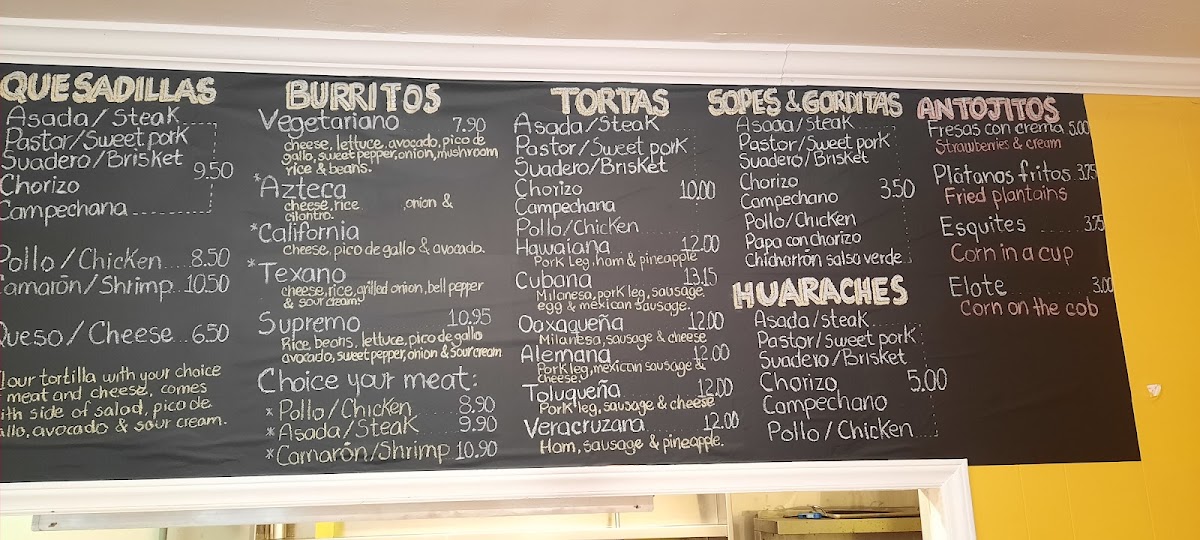 QUESADILLAS
Asada/Steak
Pastor/Sweet pork
Suadero/Brisket
9.50
Chorizo
Campechana
Pollo/Chicken 8.50
Camarón/Shrimp 10.50
Queso/Cheese 6.50
Flour tortilla with your choice
meat and cheese, comes
with side of salad, pico de
gallo, avocado & sour cream.
BURRITOS
Vegetariano 7.90
cheese, lettuce, avocado, pico de
gallo, sweet pepper, onion, mushroom
rice & beans.
*Azteca
cheese, rice ,onion &
cilantro.
*California
cheese, pico de gallo & avocado.
*Texano
cheese, rice, grilled onion, bell pepper
& sour cream.
Supremo 10.95
Rice, beans, lettuce, pico de gallo
avocado, sweet pepper, onion & sour cream
Choice your meat:
*Pollo/Chicken 8.90
*Asada/Steak 9.90
*Camarón/Shrimp 10.90
TORTAS
Asada/Steak
Pastor/Sweet pork
Suadero/Brisket
Chorizo 10.00
Campechana
Pollo/Chicken
Hawaiana 12.00
Pork Leg, ham & pineapple
Cubana 13.15
Milanesa, pork leg, sausage,
egg & mexican sausage.
Oaxaqueña 12.00
Milanesa, sausage & cheese
Alemana 12.00
Pork leg, mexican sausage &
cheese.
Toluqueña 12.00
Pork leg, sausage & cheese
Veracruzana 12.00
Ham, sausage & pineapple.
SOPES & GORDITAS
Asada/Steak
Pastor/Sweet pork
Suadero/Brisket
Chorizo 3.50
Campechano
Pollo/Chicken
Papa con chorizo
Chicharrón salsa verde
HUARACHES
Asada/steak
Pastor/sweet pork
Suadero/Brisket
Chorizo 5.00
Campechano
Pollo/Chicken
ANTOJITOS
Fresas con crema 5.00
Strawberries & cream
Plátanos fritos 3.75
Fried plantains
Esquites 3.75
Corn in a cup
Elote 3.00
Corn on the cob